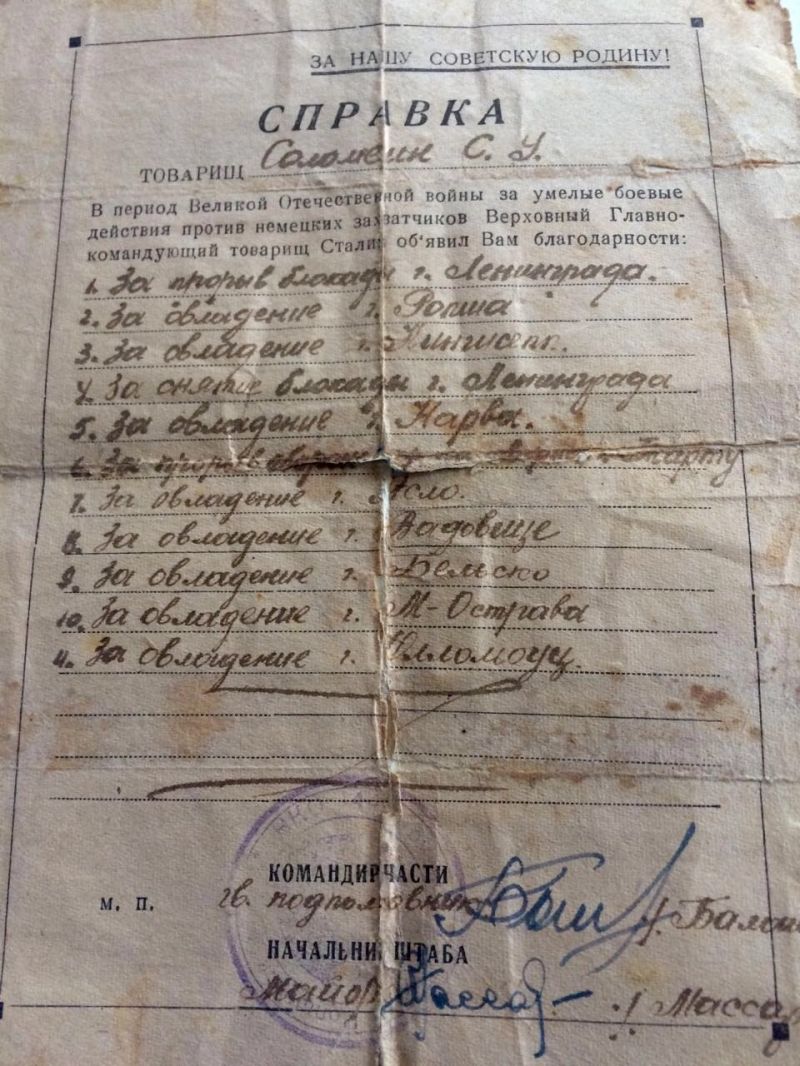 ЗА НАШУ СОВЕТСКУЮ РОДИНУ!
СПРАВКА
ТОВАРИЩ Соломеин С. У.
В период Великой Отечественной войны за умелые боевые
действия против немецких захватчиков Верховный Главно-
командующий товарищ Сталин об'явил Вам благодарности:
1. За прорыв блокады г. Ленинграда.
2. За овладение г. Ропша
3. За овладение г. Кингисепп.
4. За снятие блокады г. Ленинграда
5. За овладение г. Нарва.
6. За прорыв Тарту
7. За овладение г. Ясло.
8. За овладение г. Вадовице
9. За овладение г. Бельско
10. За овладение г. М-Острава
11. За овладение г. Оломоуц.
КОМАНДИР ЧАСТИ
м. п. гв. подполковник
НАЧАЛЬНИК ШТАБА
Майор